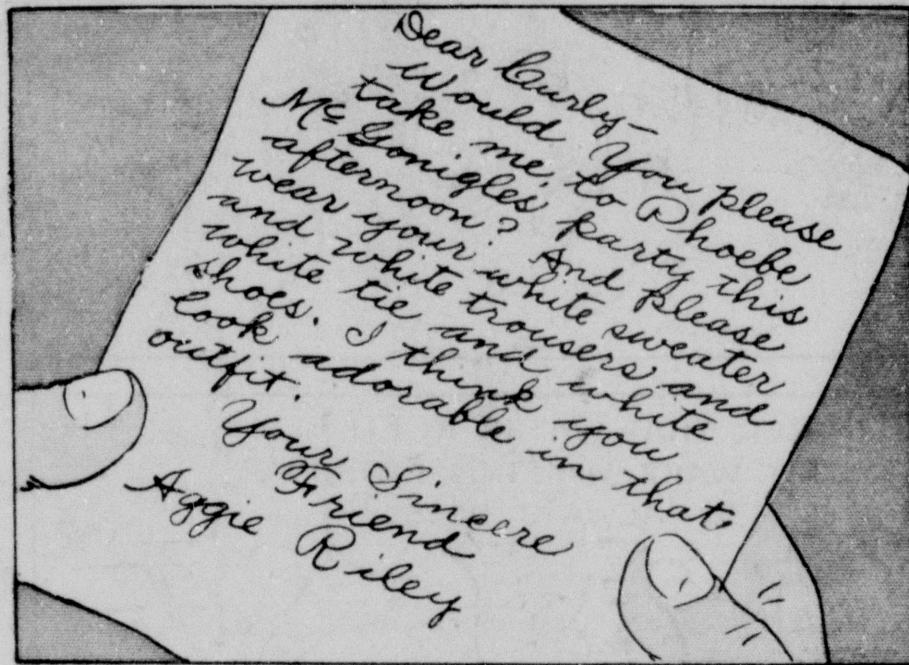 Dear Curly—
Would You please
take me to Phoebe
McGonigles party this
afternoon? And please
wear your white sweater
and white trousers and
white tie and white
shoes. I think you
look adorable in that
outfit.
Your Sincere
Friend
Aggie Riley